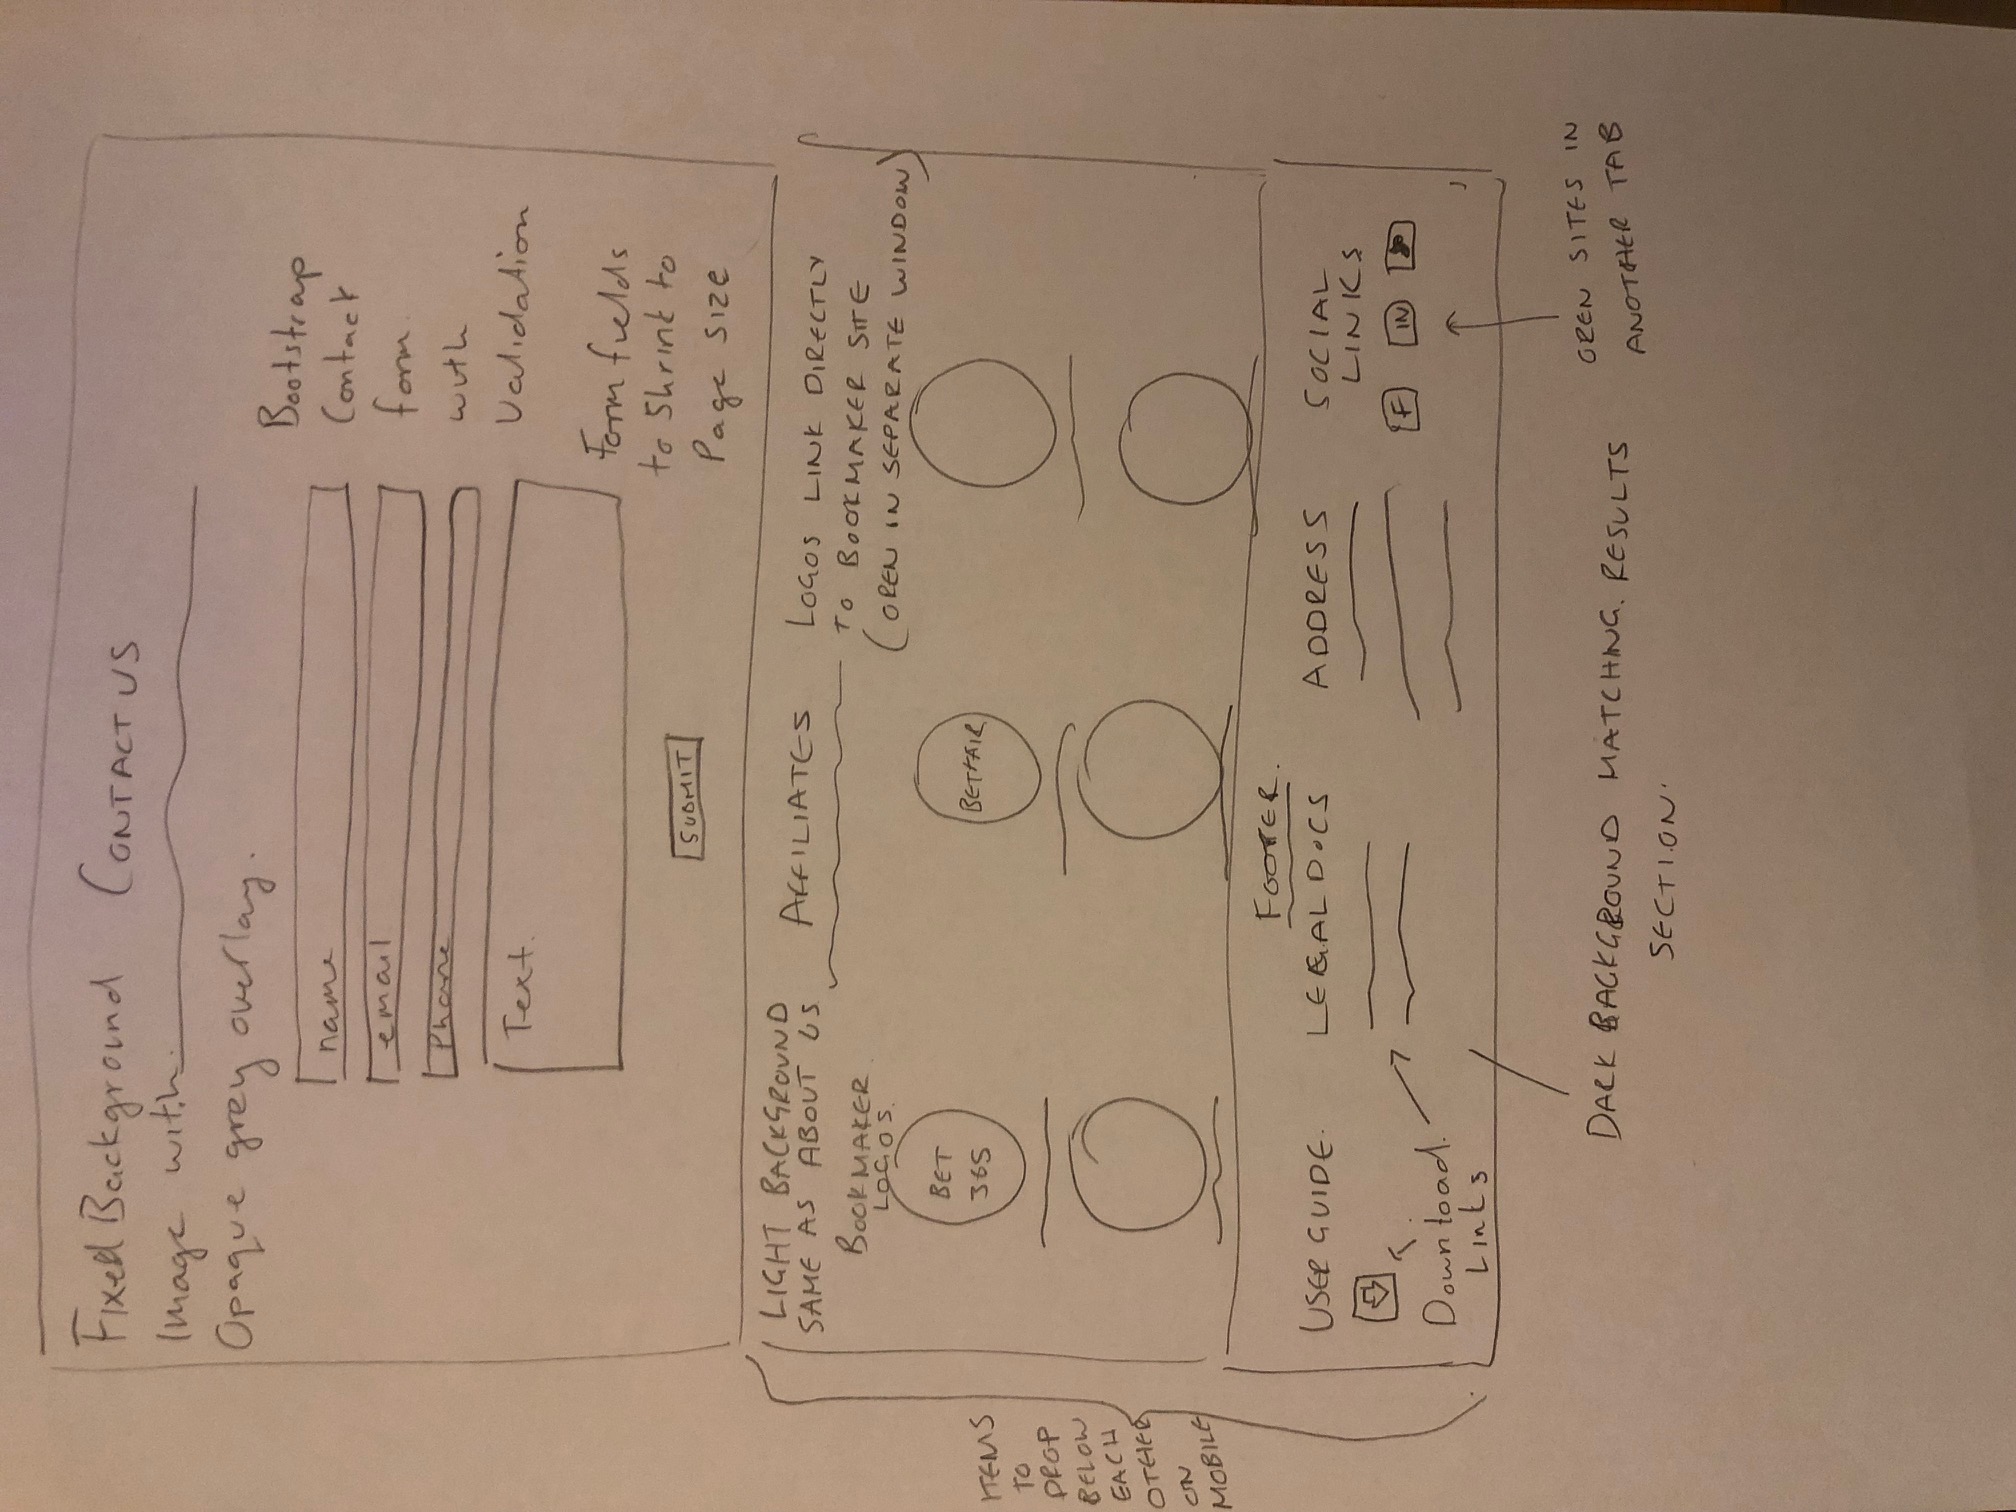 Fixed Background
Image with
Opaque grey overlay.
CONTACT US
name
email
Phone
Text.
SUBMIT
Bootstrap
Contact
form
with
Validation
Form fields
to Shrink to
Page SIZE
LIGHT BACKGROUND
SAME AS ABOUT US
AFFILIATES
LOGOS LINK DIRECTLY
TO BOOKMAKER SITE
(OPEN IN SEPARATE WINDOW)
BOOKMAKER
LOGOS.
BET
365
BETFAIR
ITEMS
TO
DROP
BELOW
EACH
OTHER
ON
MOBILE
FOOTER.
USER GUIDE.
LEGAL DOCS
ADDRESS
SOCIAL
LINKS
F
IN
Download.
Links
DARK BACKGROUND MATCHING. RESULTS
SECTION.
OPEN SITES IN
ANOTHER TAB